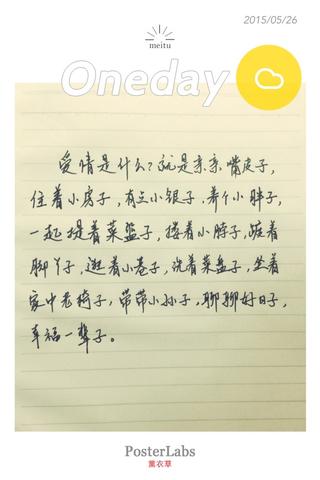 2015/05/26
meitu
Oneday
爱情是什么?就是亲亲嘴皮子,
住着小房子,有点小银子,养个小胖子,
一起提着菜篮子,搂着小脖子,踮着
脚丫子,逛着小巷子,洗着菜盘子,坐着
家中老椅子,带带小孙子,聊聊好日子,
幸福一辈子。
PosterLabs
薰衣草